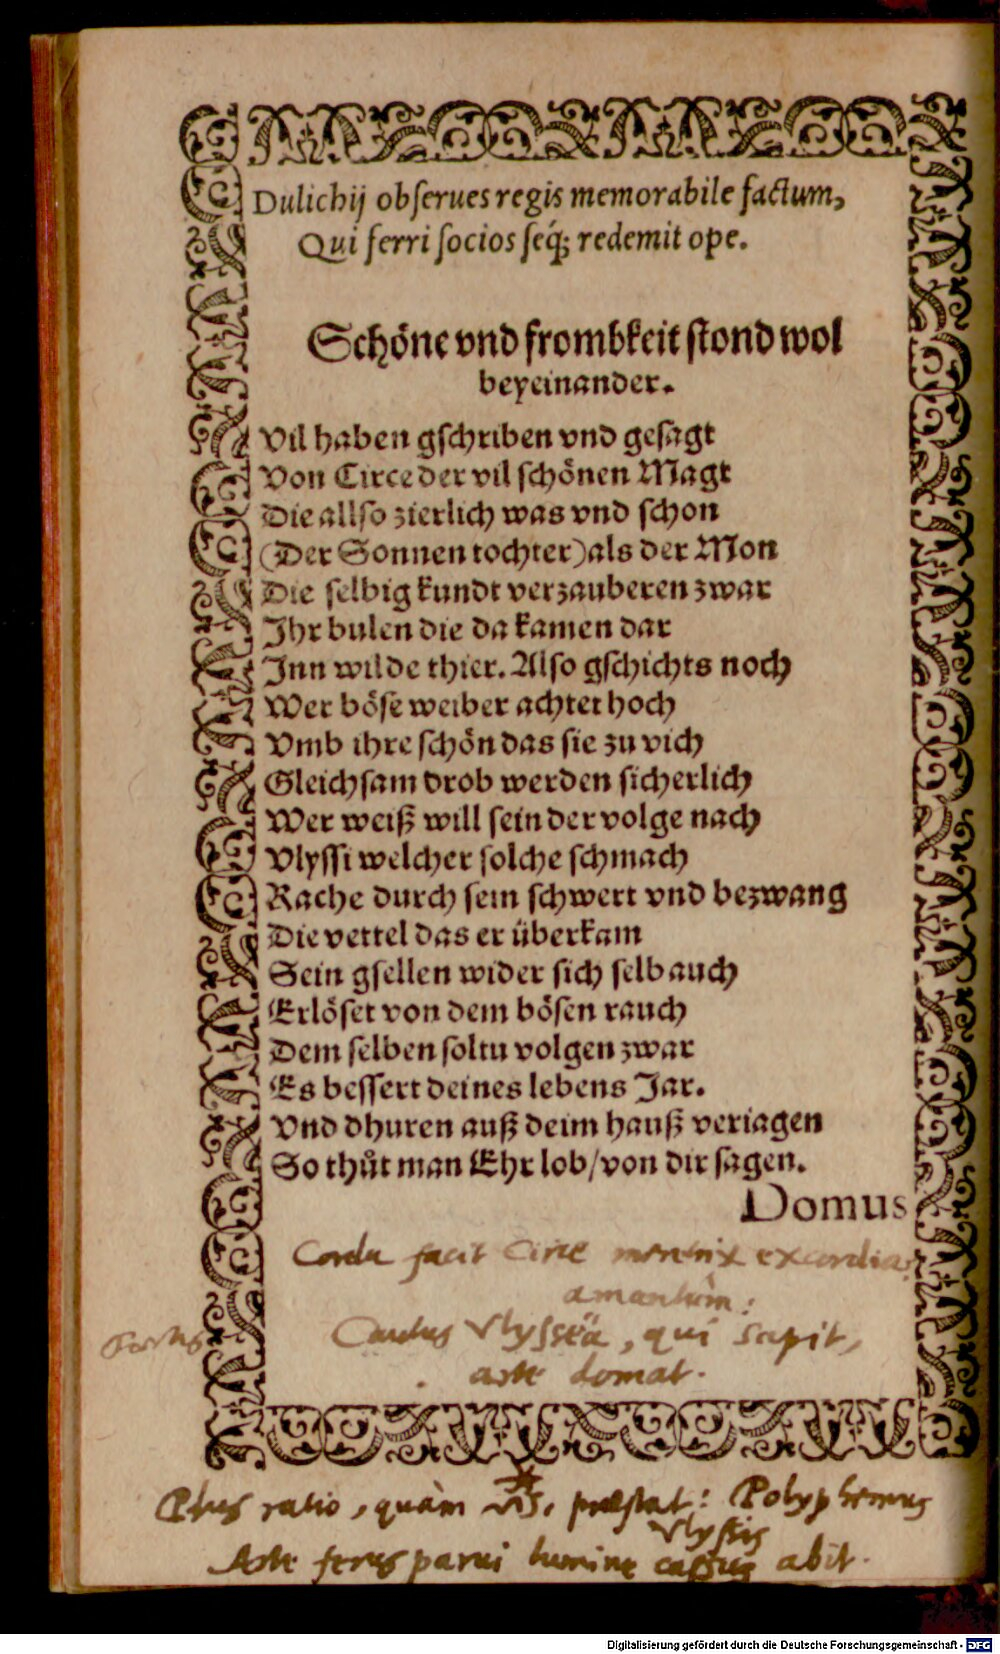 Dulichij obſerues regis memorabile factum,
Qui ferri ſocios ſeq́; redemit ope.
Schöne vnd frombkeit ſtond wol
beyeinander.
Vil haben gſchriben vnd geſagt
Von Circe der vil ſchönen Magt
Die allſo zierlich was vnd ſchon
(Der Sonnen tochter) als der Mon
Die ſelbig kundt verzauberen zwar
Ihr bulen die da kamen dar
Inn wilde thier. Alſo gſchichts noch
Wer böſe weiber achtet hoch
Vmb ihre ſchön das ſie zu vich
Gleichſam drob werden ſicherlich
Wer weiß will ſein der volge nach
Vlyſſi welcher ſolche ſchmach
Rache durch ſein ſchwert vnd bezwang
Die vettel das er überkam
Sein gſellen wider ſich ſelb auch
Erlöſet von dem böſen rauch
Dem ſelben ſoltu volgen zwar
Es beſſert deines lebens Jar.
Vnd dhuren auß deim hauß veriagen
So thůt man Ehr lob/von dir ſagen.
Domus
Corda facit Circe meretrix excordia
amantûm:
Cautus Vlyſſëa, qui sapit,
arte domat.
Plus ratio, quàm vis, præstat: Polyphemus
Vlyſsis
Arte ferus parui lumine caſsus abit.